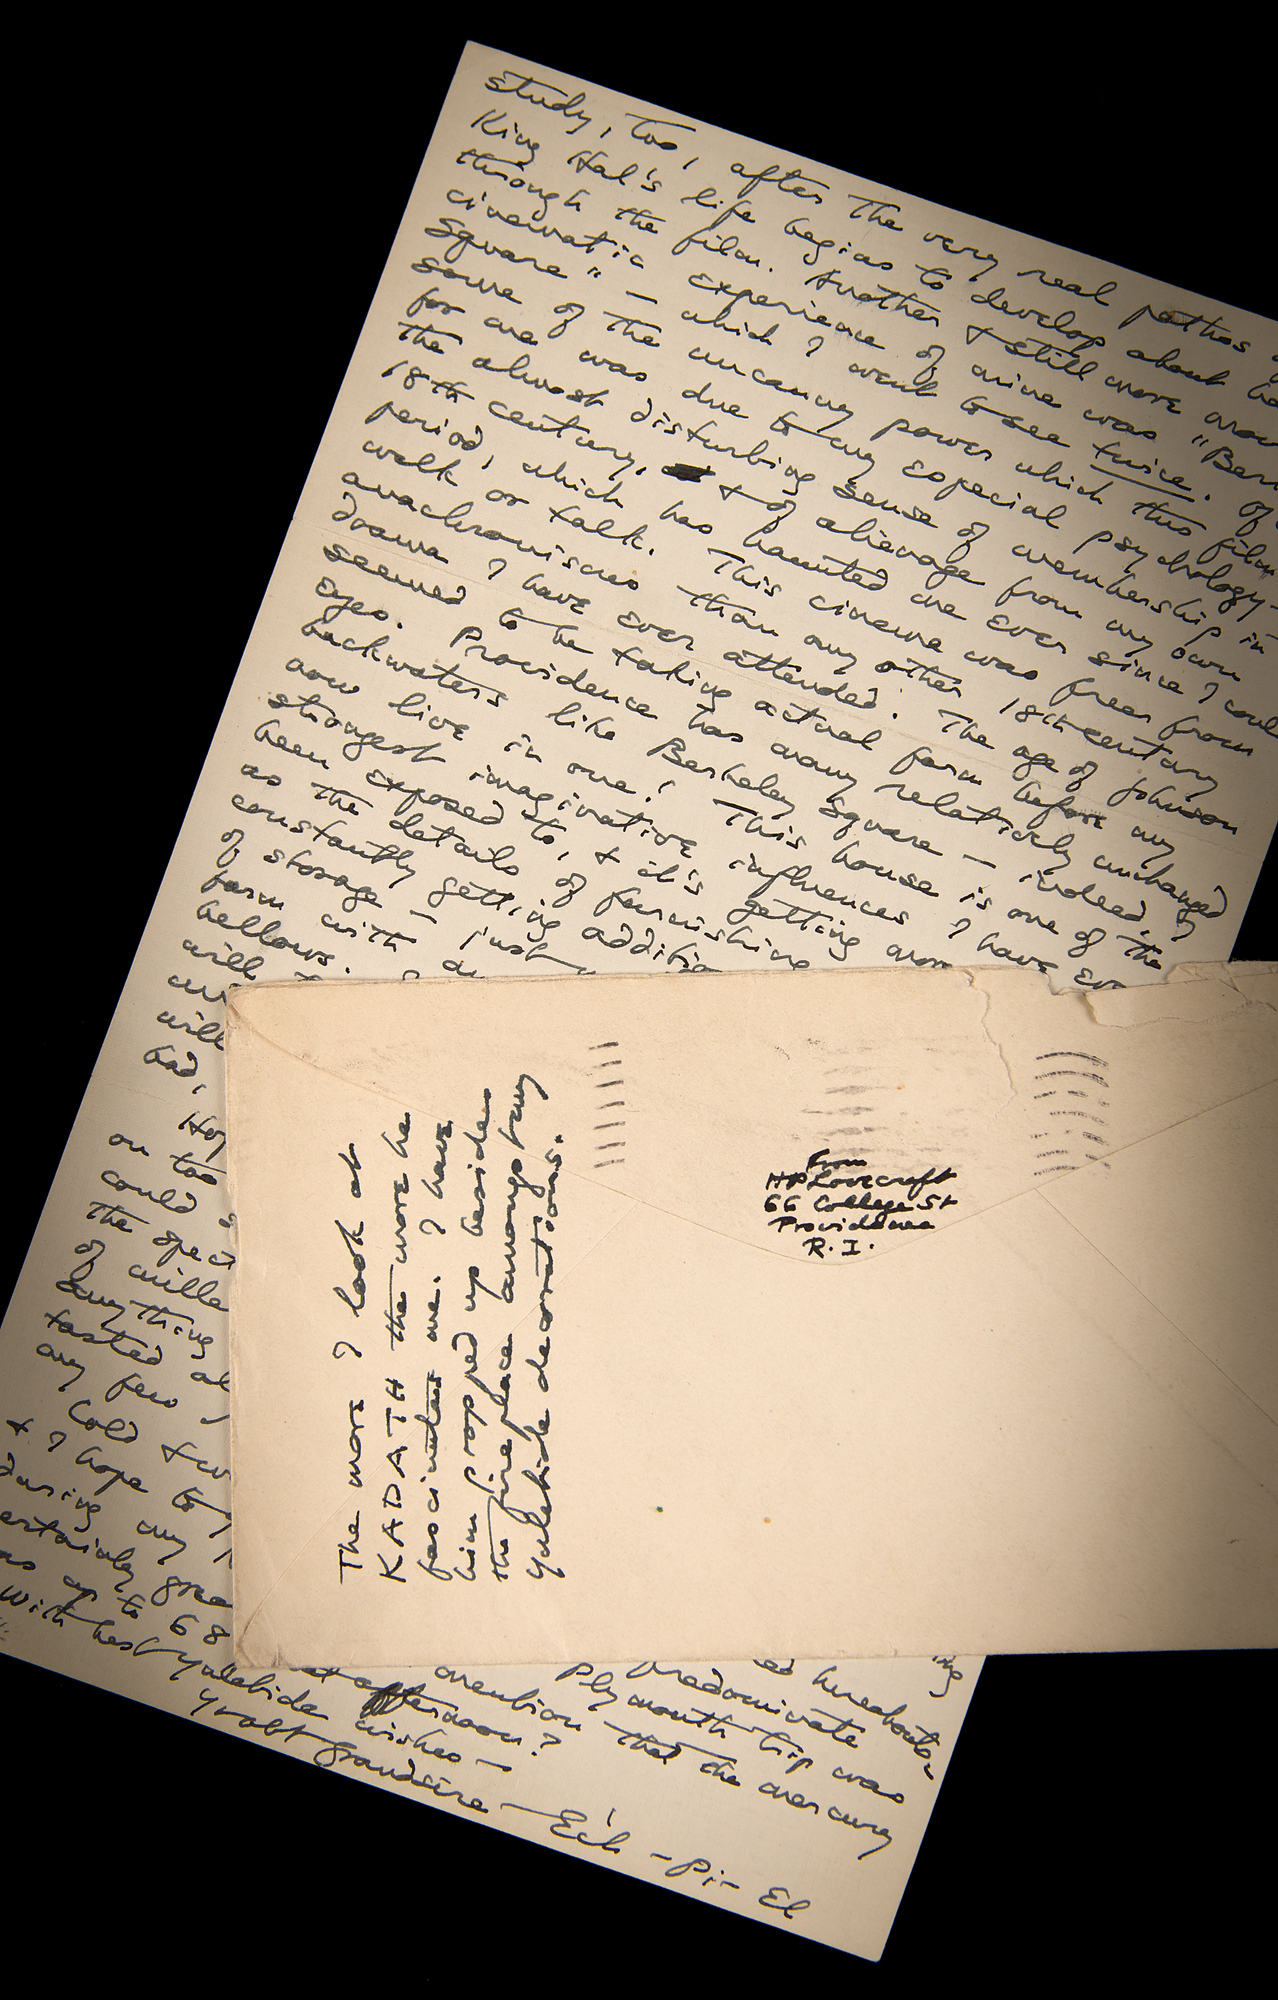 study, too, after the very real pathos
King Hal's life begins to develop about
through the film. Another & still more
cinematic experience of mine was "Ber
Square" — which I went to see twice. Of
some of the uncanny power which this film
for me was due to my especial psychology—
the almost disturbing sense of membership in
18th century, & of alienage from my own
period, which has haunted me ever since I could
walk or talk. This cinema was freer from
anachronisms than any other 18th century
drama I have ever attended. The age of Johnson
seemed to be taking actual form before my
eyes. Providence has many relatively unchanged
backwaters like Berkeley Square — indeed, I
now live in one! This house is one of the
strongest imaginative influences I have ev
been exposed to, & it's getting more
as the details of furnishing
constantly getting additio
of storage — just
form with
bellows.
will
will
had,
Hop
on too
could
the
of mille
anything
tasted
my few
Cold
& I hope to
during my
ertainly
as up to 68
ed hereabouts,
predominate
Plymouth trip was
mention that the mercury
afternoon?
With best Yuletide wishes —
Yr obt grandsire — Ech-pi-El
The more I look at
KADATH the more he
fascinates me. I have
him propped up beside
the fireplace amongst my
Yuletide decorations.
From
HPLovecraft
66 College St
Providence
R. I.